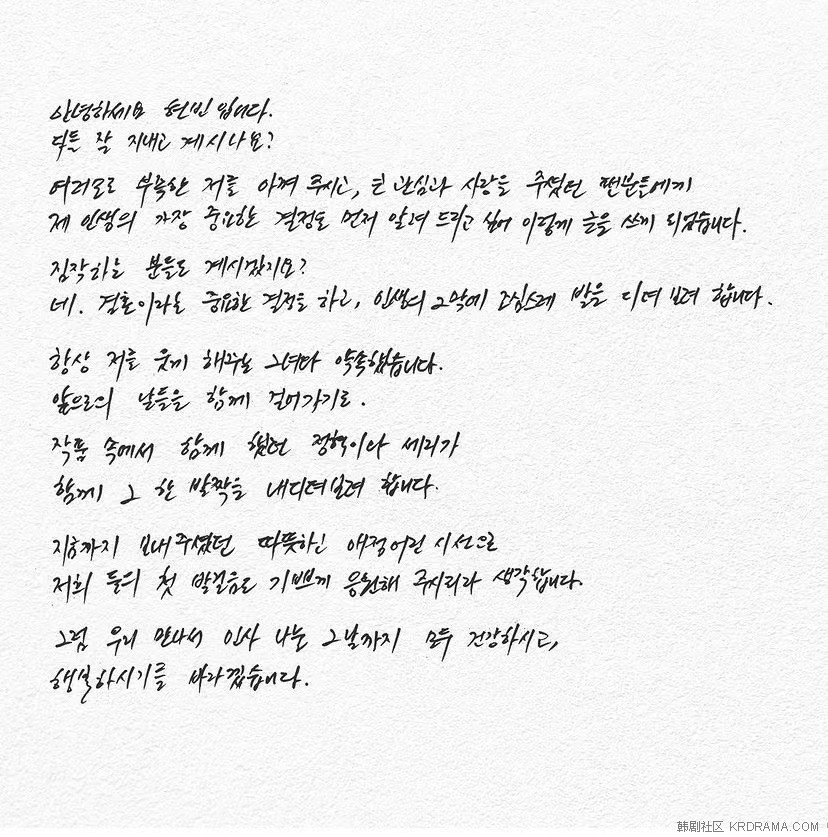 안녕하세요 현빈입니다.
다들 잘 지내고 계시나요?
여러모로 부족한 저를 아껴 주시고, 큰 관심과 사랑을 주셨던 팬분들에게
제 인생의 가장 중요한 결정을 먼저 알려 드리고 싶어 이렇게 글을 쓰게 되었습니다.
짐작하는 분들도 계시겠지요?
네. 결혼이라는 중요한 결정을 하고, 인생의 2막에 조심스레 발을 디뎌 보려 합니다.
항상 저를 웃게 해주는 그녀와 약속했습니다.
앞으로의 날들을 함께 걸어가기로.
작품 속에서 함께 했던 정혁이와 세리가
함께 그 한 발짝을 내디뎌보려 합니다.
지금까지 보내주셨던 따뜻하신 애정어린 시선으로
저희 둘의 첫 발걸음도 기쁘게 응원해 주시리라 생각합니다.
그럼 우리 만나서 인사 나눌 그날까지 모두 건강하시고,
행복하시기를 바라겠습니다.
韩剧社区 KRDRAMA.COM